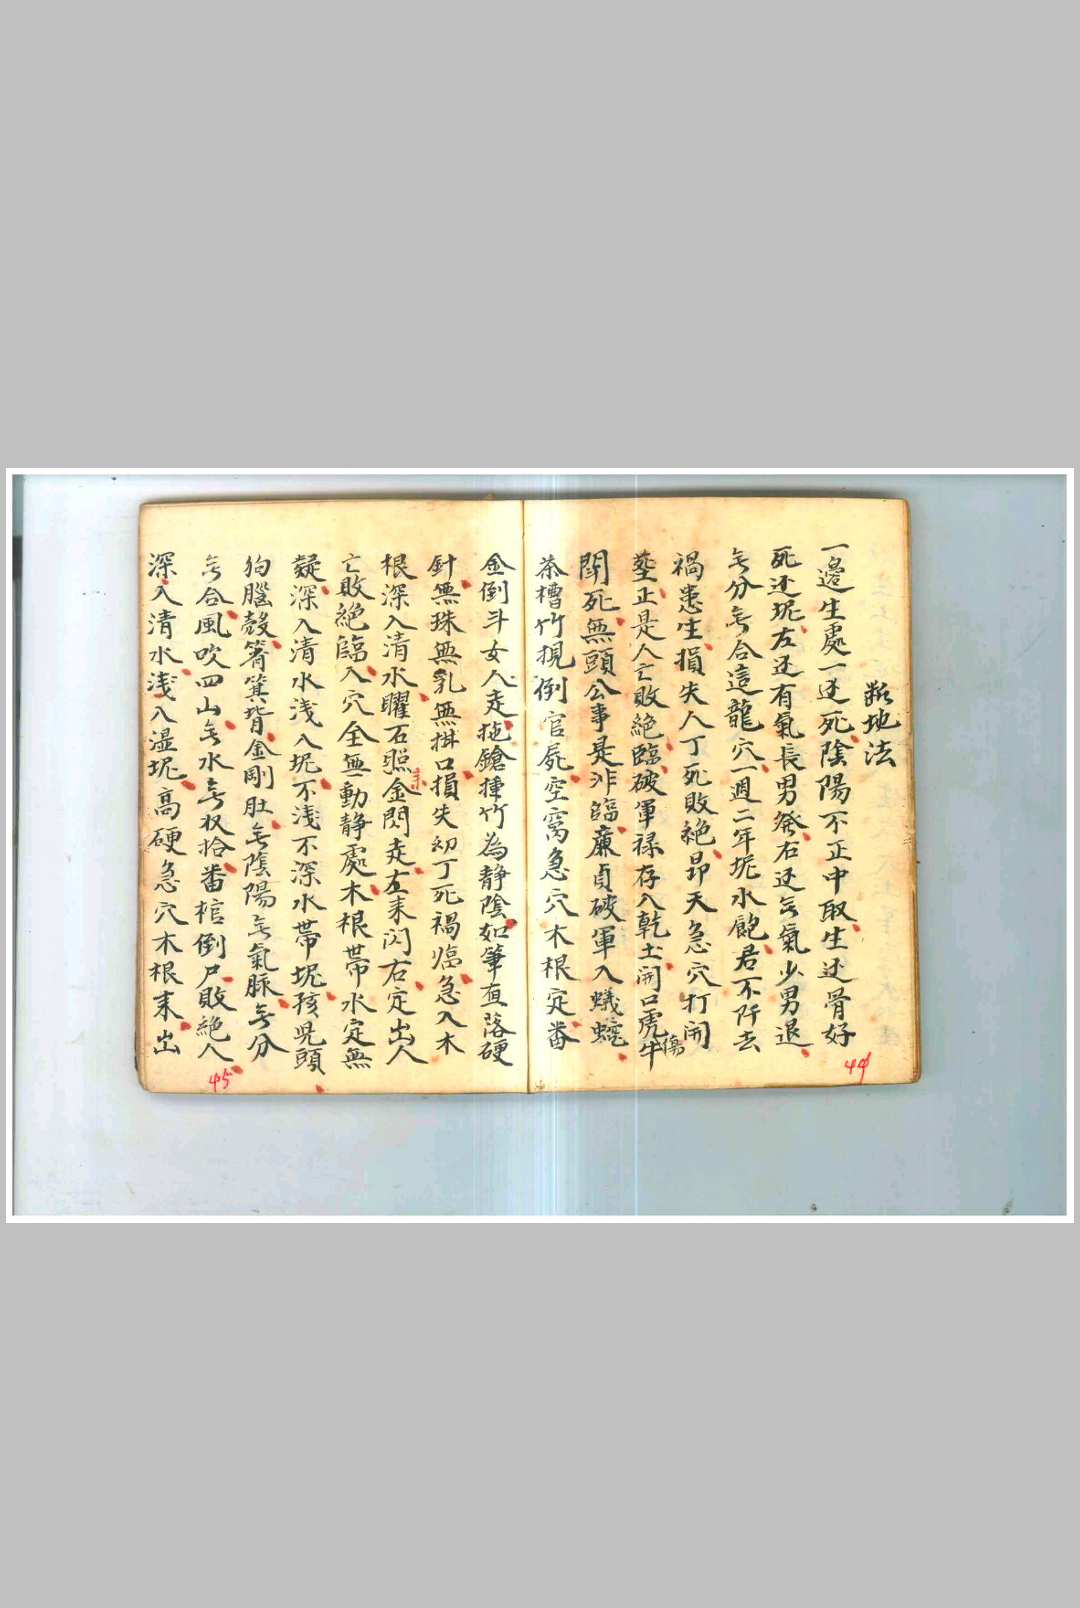 斷地法
一邉生處一迯死陰陽不正中取生迯骨好
死迯坭左迯有氣長男發右迯旡氣少男退
旡分旡合這龍穴一週二年坭水飽君不阡去
禍患生損失人丁死敗絕昂天急穴打開
塟正是人亡敗絕臨破軍禄存入乾土開口虎牛
傷
閗死無頭公事是非臨廉貞破軍入蟻
茶槽竹梘倒官屍空窩急穴木根定番
44
金倒斗女人走拖鎗捶竹為静陰如筆直落硬
針無珠無乳無掛口損失幼丁死禍临急入木
根深入清水曜石照金閃走左耒闪右定出人
耒
亡敗絕臨入穴全無動静處木根帶水定無
疑深入清水浅入坭不浅不深水帶坭孩児頭
狗腦殼箐箕背金剛肚旡陰陽旡氣脉旡分
旡合風吹四山旡水旡収拾番棺倒尸敗絕人
深入清水浅入湿坭高硬急穴木根耒出
45